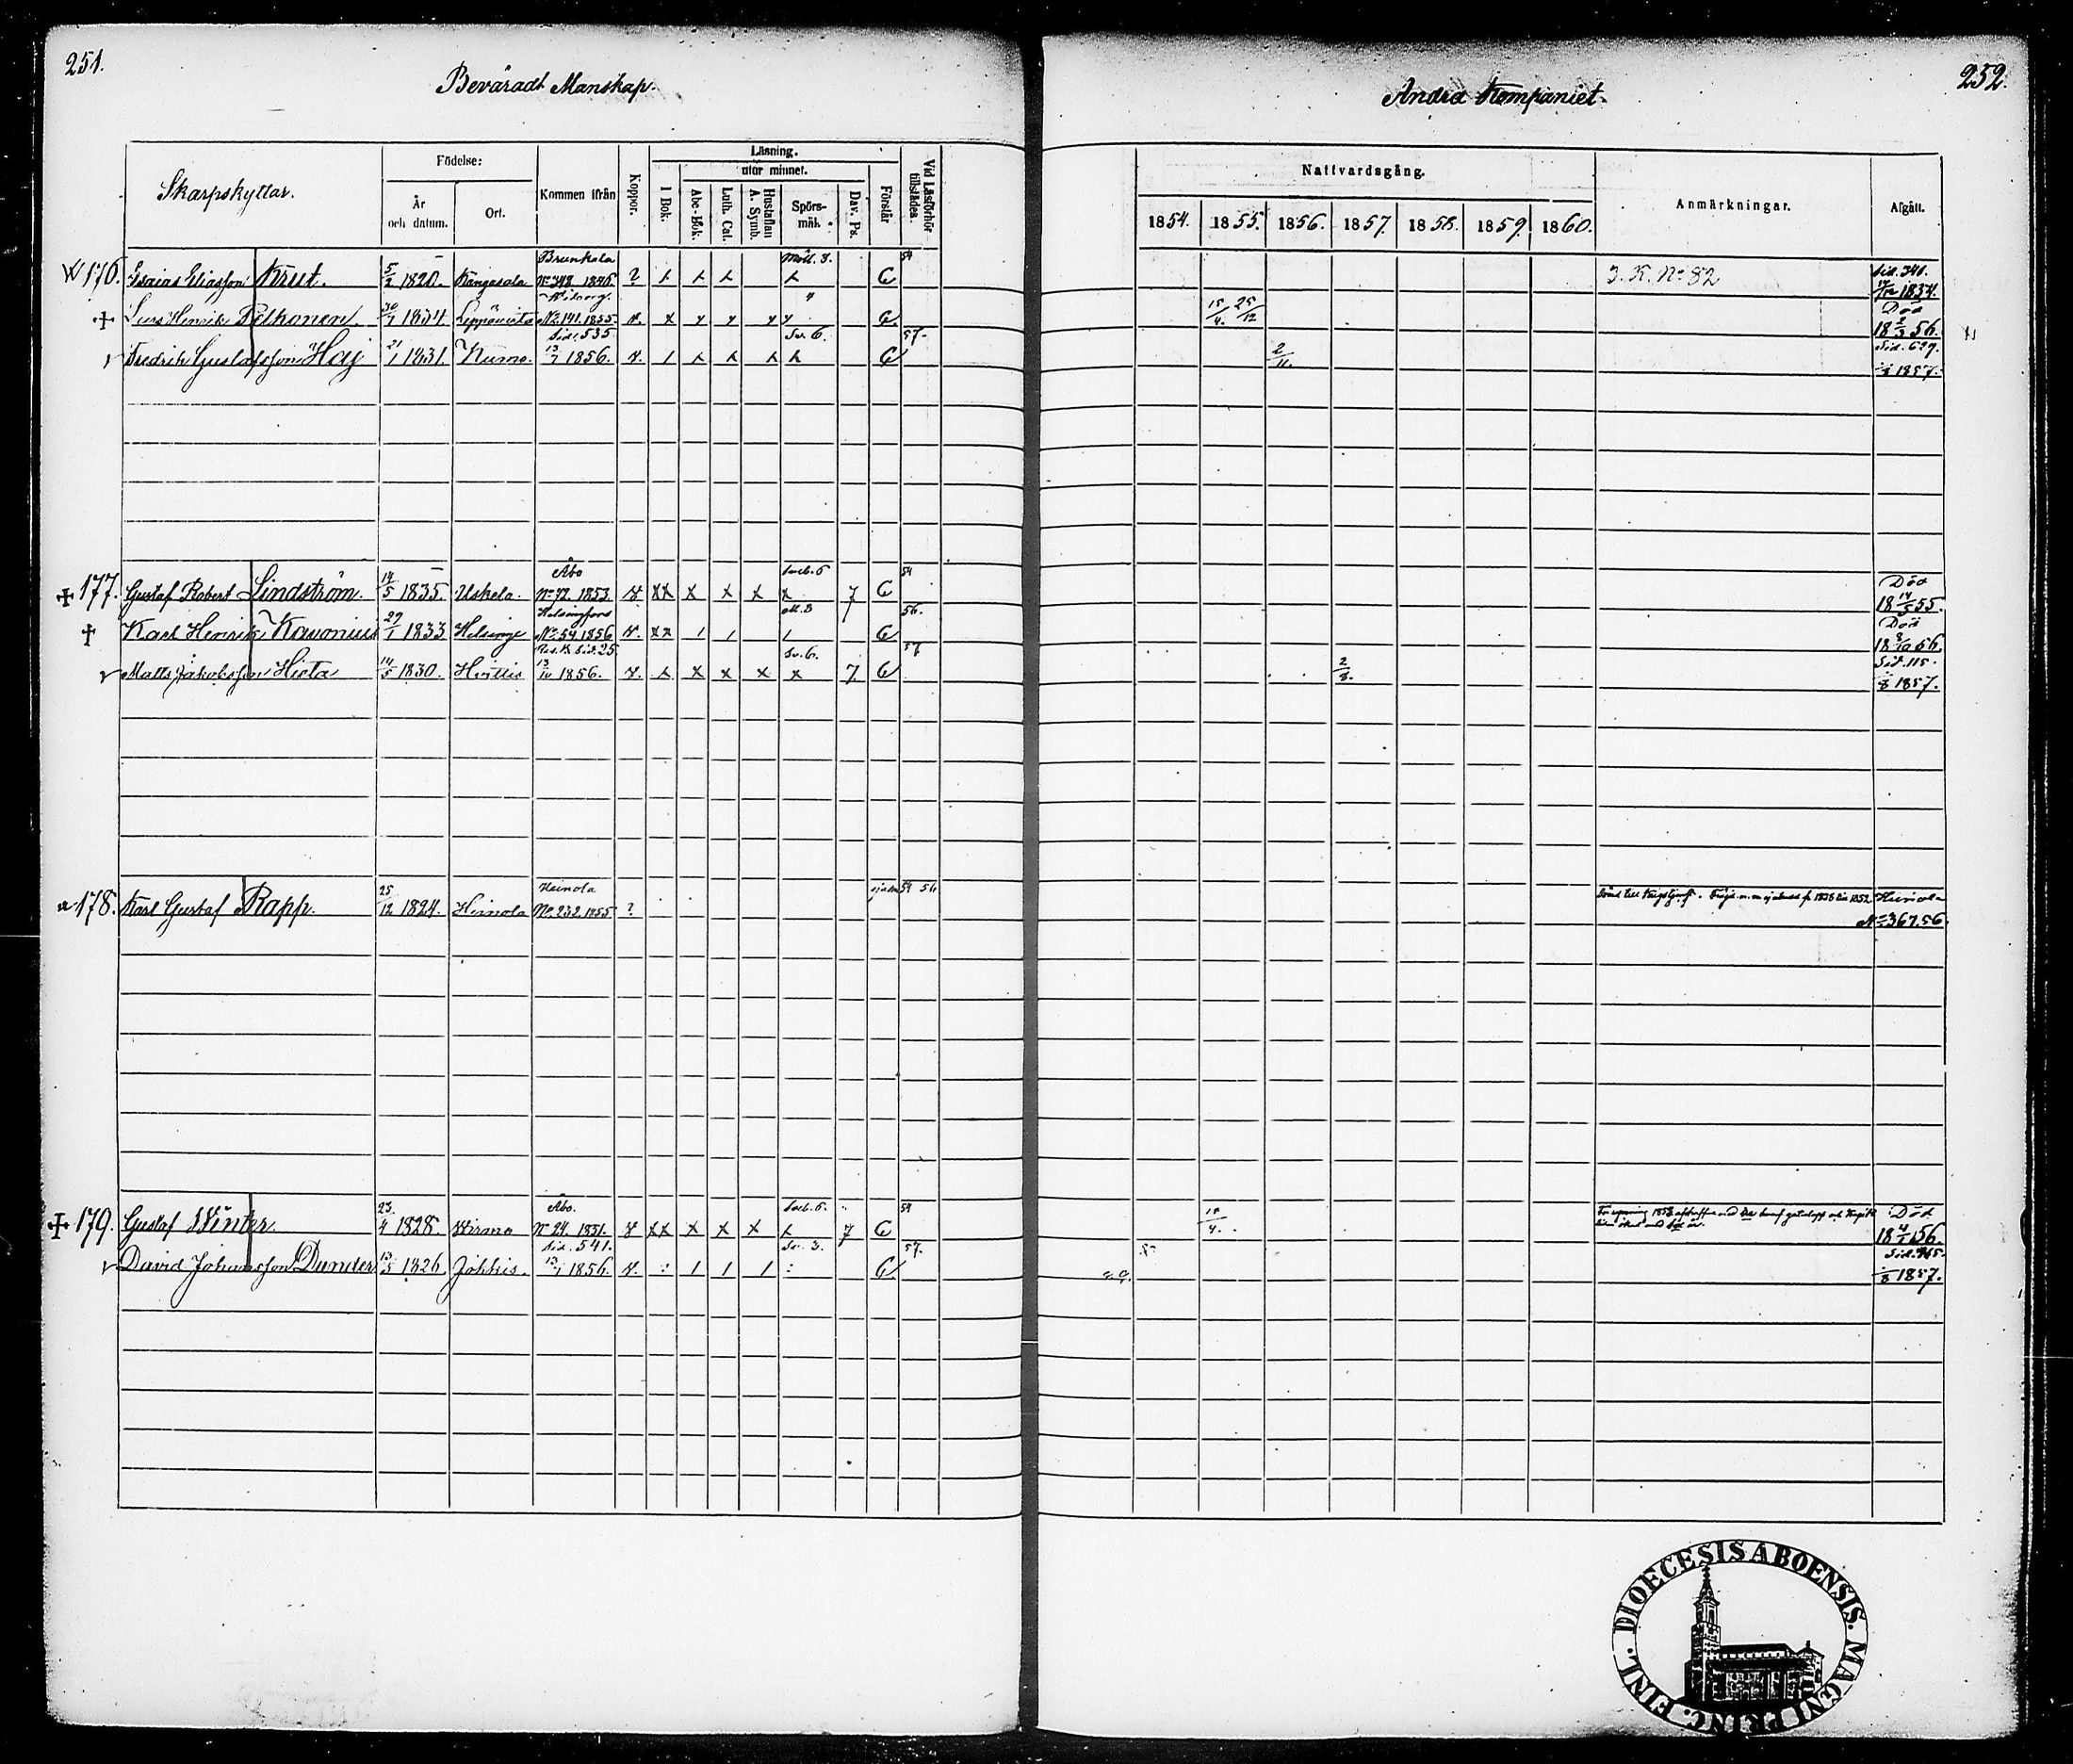 251.
Beväradt Manskap.
Andra Kompaniet.
252.
Skarpskyttar.
Födelse:
År och datum.
Ort.
Kommen ifrån
Koppor.
Läsning.
I Bok.
utur minnet.
Abc-Bok.
Luth. Cat.
Hustaflan A. Symb.
Spörsmål.
Dav. Ps.
Förstår
Vid Läsförhör tillstädes.
Nattvardsgång.
1854. 1855. 1856. 1857. 1858. 1859. 1860.
Anmärkningar.
Afgått.
176. Esaias Eliasson Krut. 5/2 1820. Kangasala Brunkala No 348 1846. ? C 54 J. K. No 82 Sid. 341.
Lars Henrik Pelkonen. 30/1 1834. Leppävirta Wiborg. No 141. 1855. v. C 15/4. 25/12 Död 18 2/3 56.
Fredrik Gustafsson Haij 21/1 1831. Kumo. Sid. 535 13/7 1856. v. Sv. 6. C 57. 2/11. Sid. 629. 1857.
177. Gustaf Robert Lindström. 14/5 1835. Uskela. Åbo No 72 1853 v xx x x x x 7 C 54 Död 18 14/5 55.
Karl Henrik Kavonius 27/1 1833 Helsinge Helsingfors No 54 1856 v. xx C 56. Död 18 8/10 56.
Matts Jakobsson Hieta 14/5 1830. Hvittis Sid. 25 13/10 1856. v. Sv. 6. x x x x 7. C 57 2/8. Sid. 115. 1857.
178. Karl Gustaf Rapp. 25/12 1824. Heinola Heinola No 232 1855 ? 54 56 Heinola No 367. 56.
179. Gustaf Winter. 23/4 1828. Wirmo Åbo. No 24. 1851. v xx x x x 7 C 54 Död 18 4/1 56.
David Johansson Dunder 13/5 1826 Jokkis. Sid. 541. 13/7 1856. v. Sv. 3. C 57. 1857.
DIOECESIS ABOENSIS. MAGNI PRINC. FINL.